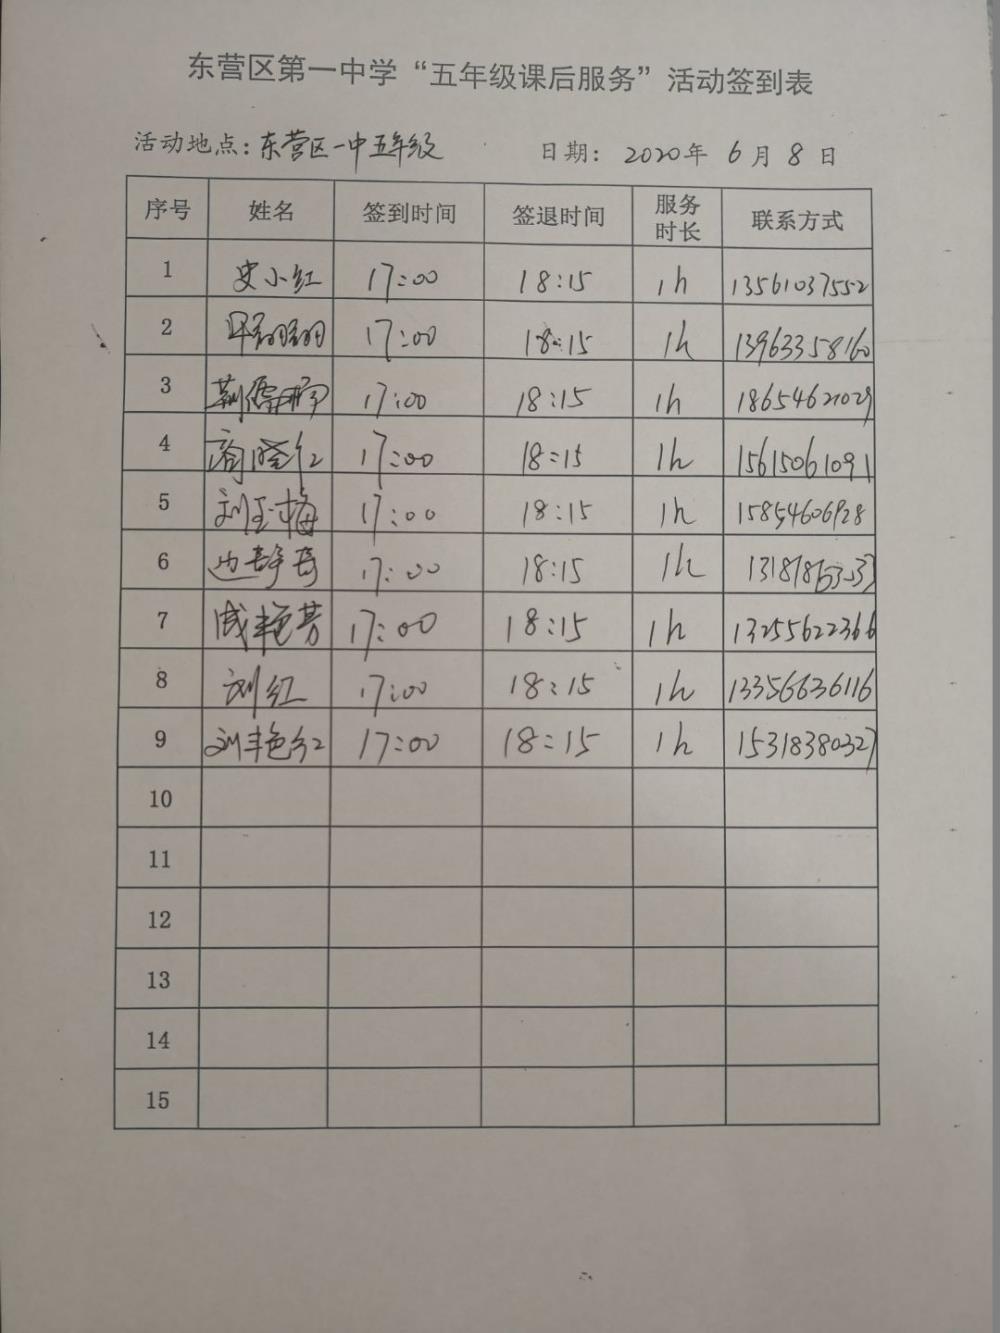 东营区第一中学“五年级课后服务”活动签到表
活动地点：东营区一中五年级 日期：2020年6月8日
序号 姓名 签到时间 签退时间 服务时长 联系方式
1 史小红 17:00 18:15 1h 13561037552
2 17:00 18:15 1h 13963358160
3 17:00 18:15 1h 18654621029
4 商晓红 17:00 18:15 1h 15615061091
5 刘玉梅 17:00 18:15 1h 15854606928
6 边静奇 17:00 18:15 1h
7 成艳芳 17:00 18:15 1h 13255622366
8 刘红 17:00 18:15 1h 13356636116
9 刘艳红 17:00 18:15 1h 15318380327
10
11
12
13
14
15